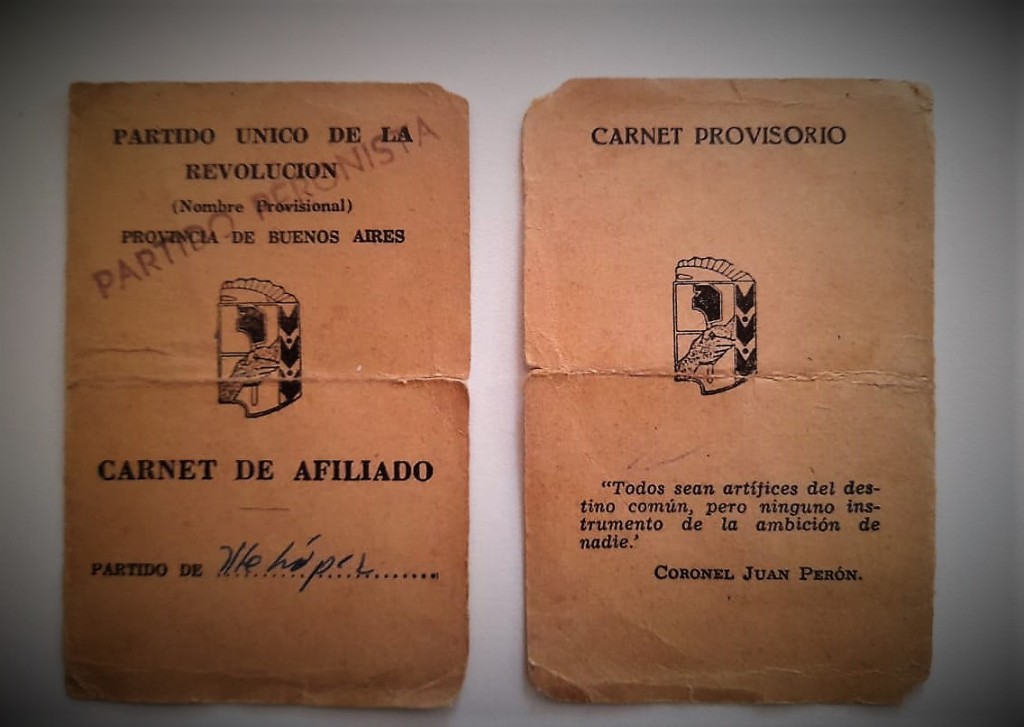 PARTIDO UNICO DE LA
REVOLUCION
(Nombre Provisional)
PROVINCIA DE BUENOS AIRES
PARTIDO PERONISTA
CARNET DE AFILIADO
PARTIDO DE
CARNET PROVISORIO
"Todos sean artífices del des-
tino común, pero ninguno ins-
trumento de la ambición de
nadie.'
CORONEL JUAN PERÓN.